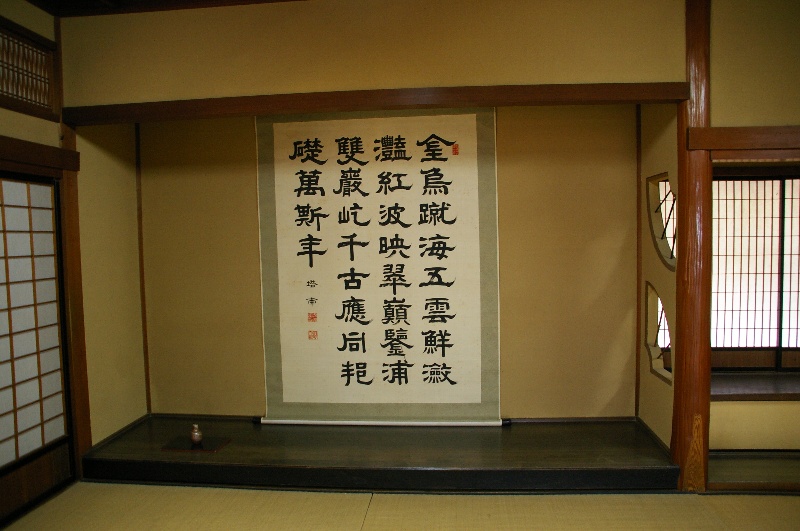 金烏蹴海五雲鮮瀲
灩紅波映翠巓鑒浦
雙巖屹千古應同
礎萬斯年
塔南